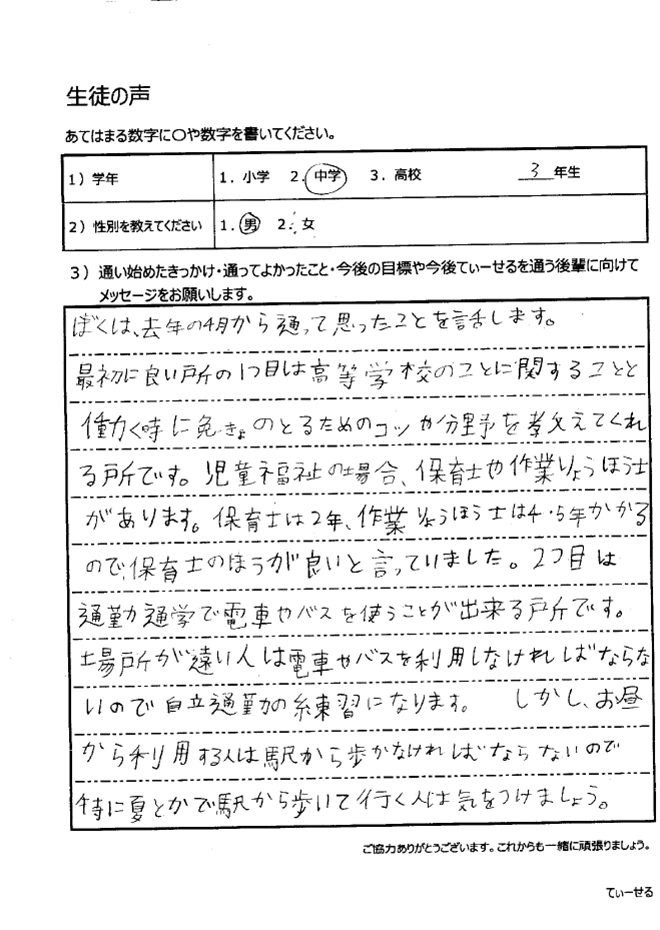 生徒の声
あてはまる数字に〇や数字を書いてください。
1）学年 1．小学 2．中学 3．高校 3 年生
2）性別を教えてください 1．男 2．女
3）通い始めたきっかけ・通ってよかったこと・今後の目標や今後てぃーせるを通う後輩に向けて
メッセージをお願いします。
ぼくは、去年の4月から通って思ったことを話します。
最初に良い所の1つ目は高等学校のことに関することと
働く時に免きょのとるためのコツか分野を教えてくれ
る所です。児童福祉の場合、保育士や作業りょうほう士
があります。保育士は2年、作業りょうほう士は4・5年かかる
ので、保育士のほうが良いと言っていました。2つ目は
通勤通学で電車やバスを使うことが出来る所です。
場所が遠い人は電車やバスを利用しなければならな
いので自立通勤の練習になります。 しかし、お昼
から利用する人は駅から歩かなければならないので
特に夏とかで駅から歩いて行く人は気をつけましょう。
ご協力ありがとうございます。これからも一緒に頑張りましょう。
てぃーせる